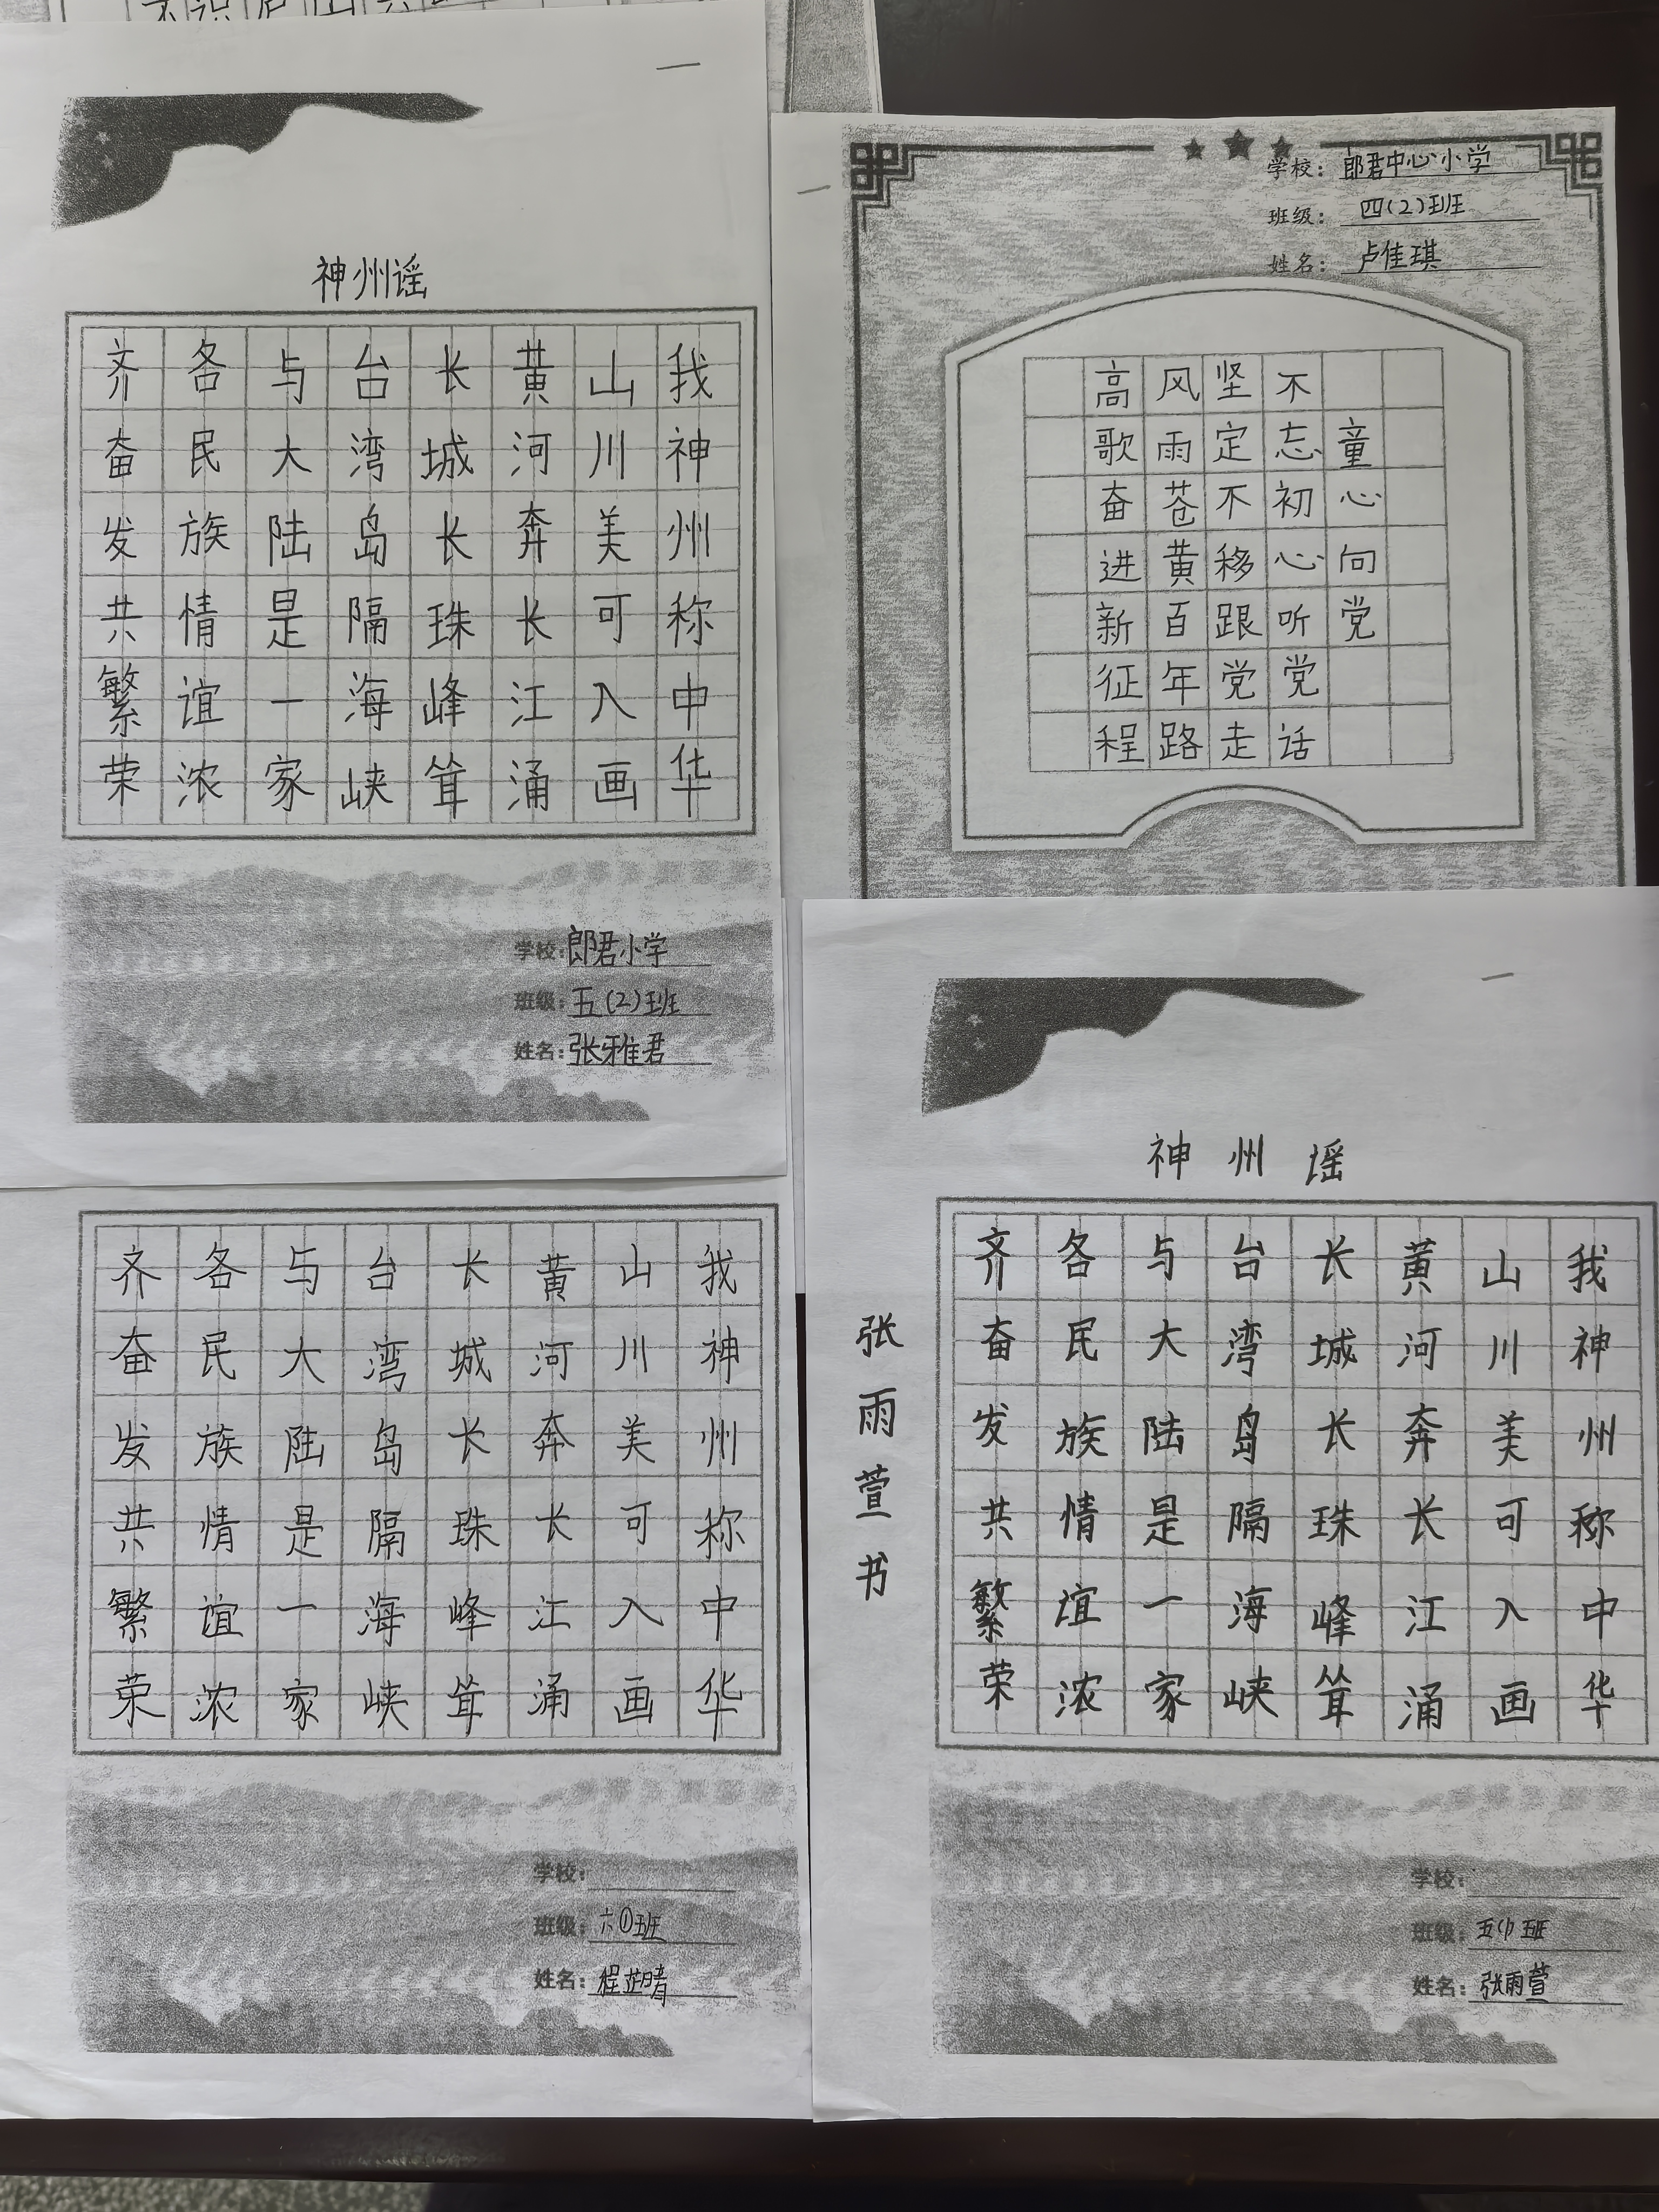 神州谣
我神州称中华
山川美可入画
黄河奔长江涌
长城长珠峰耸
台湾岛隔海峡
与大陆是一家
各民族情谊浓
齐奋发共繁荣
学校：郎君小学
班级：五（2）班
姓名：张雅君
学校：郎君中心小学
班级：四（2）班
姓名：卢佳琪
童心向党
不忘初心听党话
坚定不移跟党走
风雨苍黄百年路
高歌奋进新征程
我神州称中华
山川美可入画
黄河奔长江涌
长城长珠峰耸
台湾岛隔海峡
与大陆是一家
各民族情谊浓
齐奋发共繁荣
学校：
班级：六①班
姓名：程
神州谣
我神州称中华
山川美可入画
黄河奔长江涌
长城长珠峰耸
台湾岛隔海峡
与大陆是一家
各民族情谊浓
齐奋发共繁荣
张雨萱书
学校：
班级：五（1）班
姓名：张雨萱